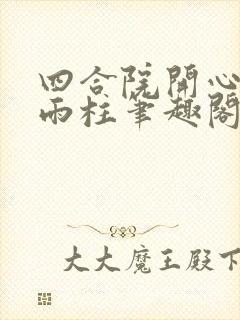 四合院開心
雨柱筆趣閣
大大魔王殿下